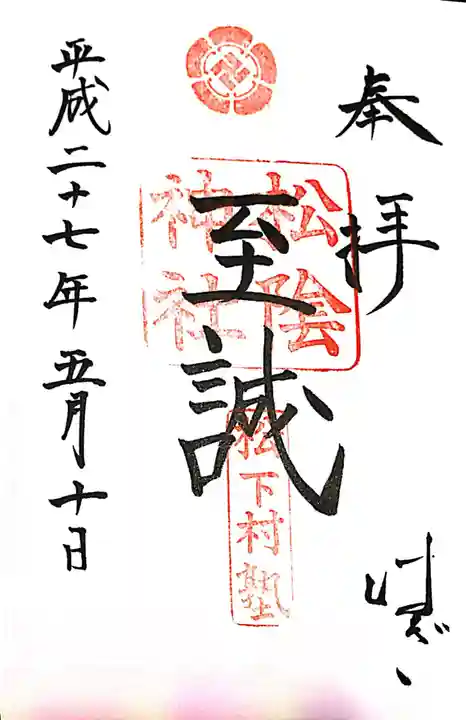 奉拝
至誠
松陰
神社
松下村塾
平成二十七年五月十日